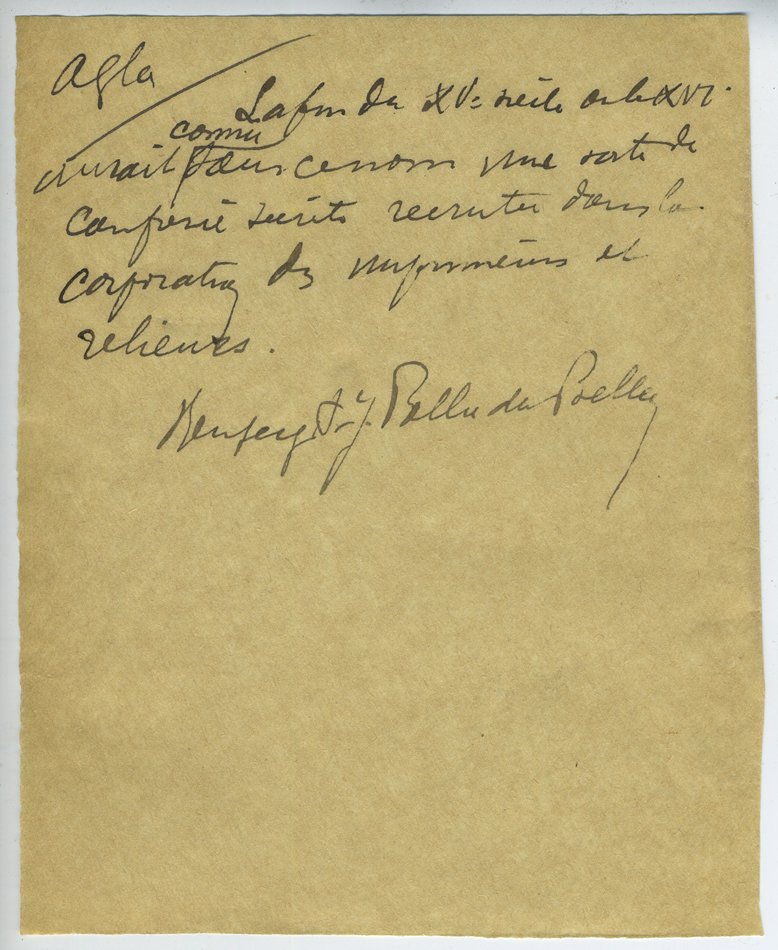 Agla
La fin du XVe siècle ou le XVI
aurait connu sous ce nom une sorte de
confrérie secrète recrutée dans la
corporation des imprimeurs et
relieurs.